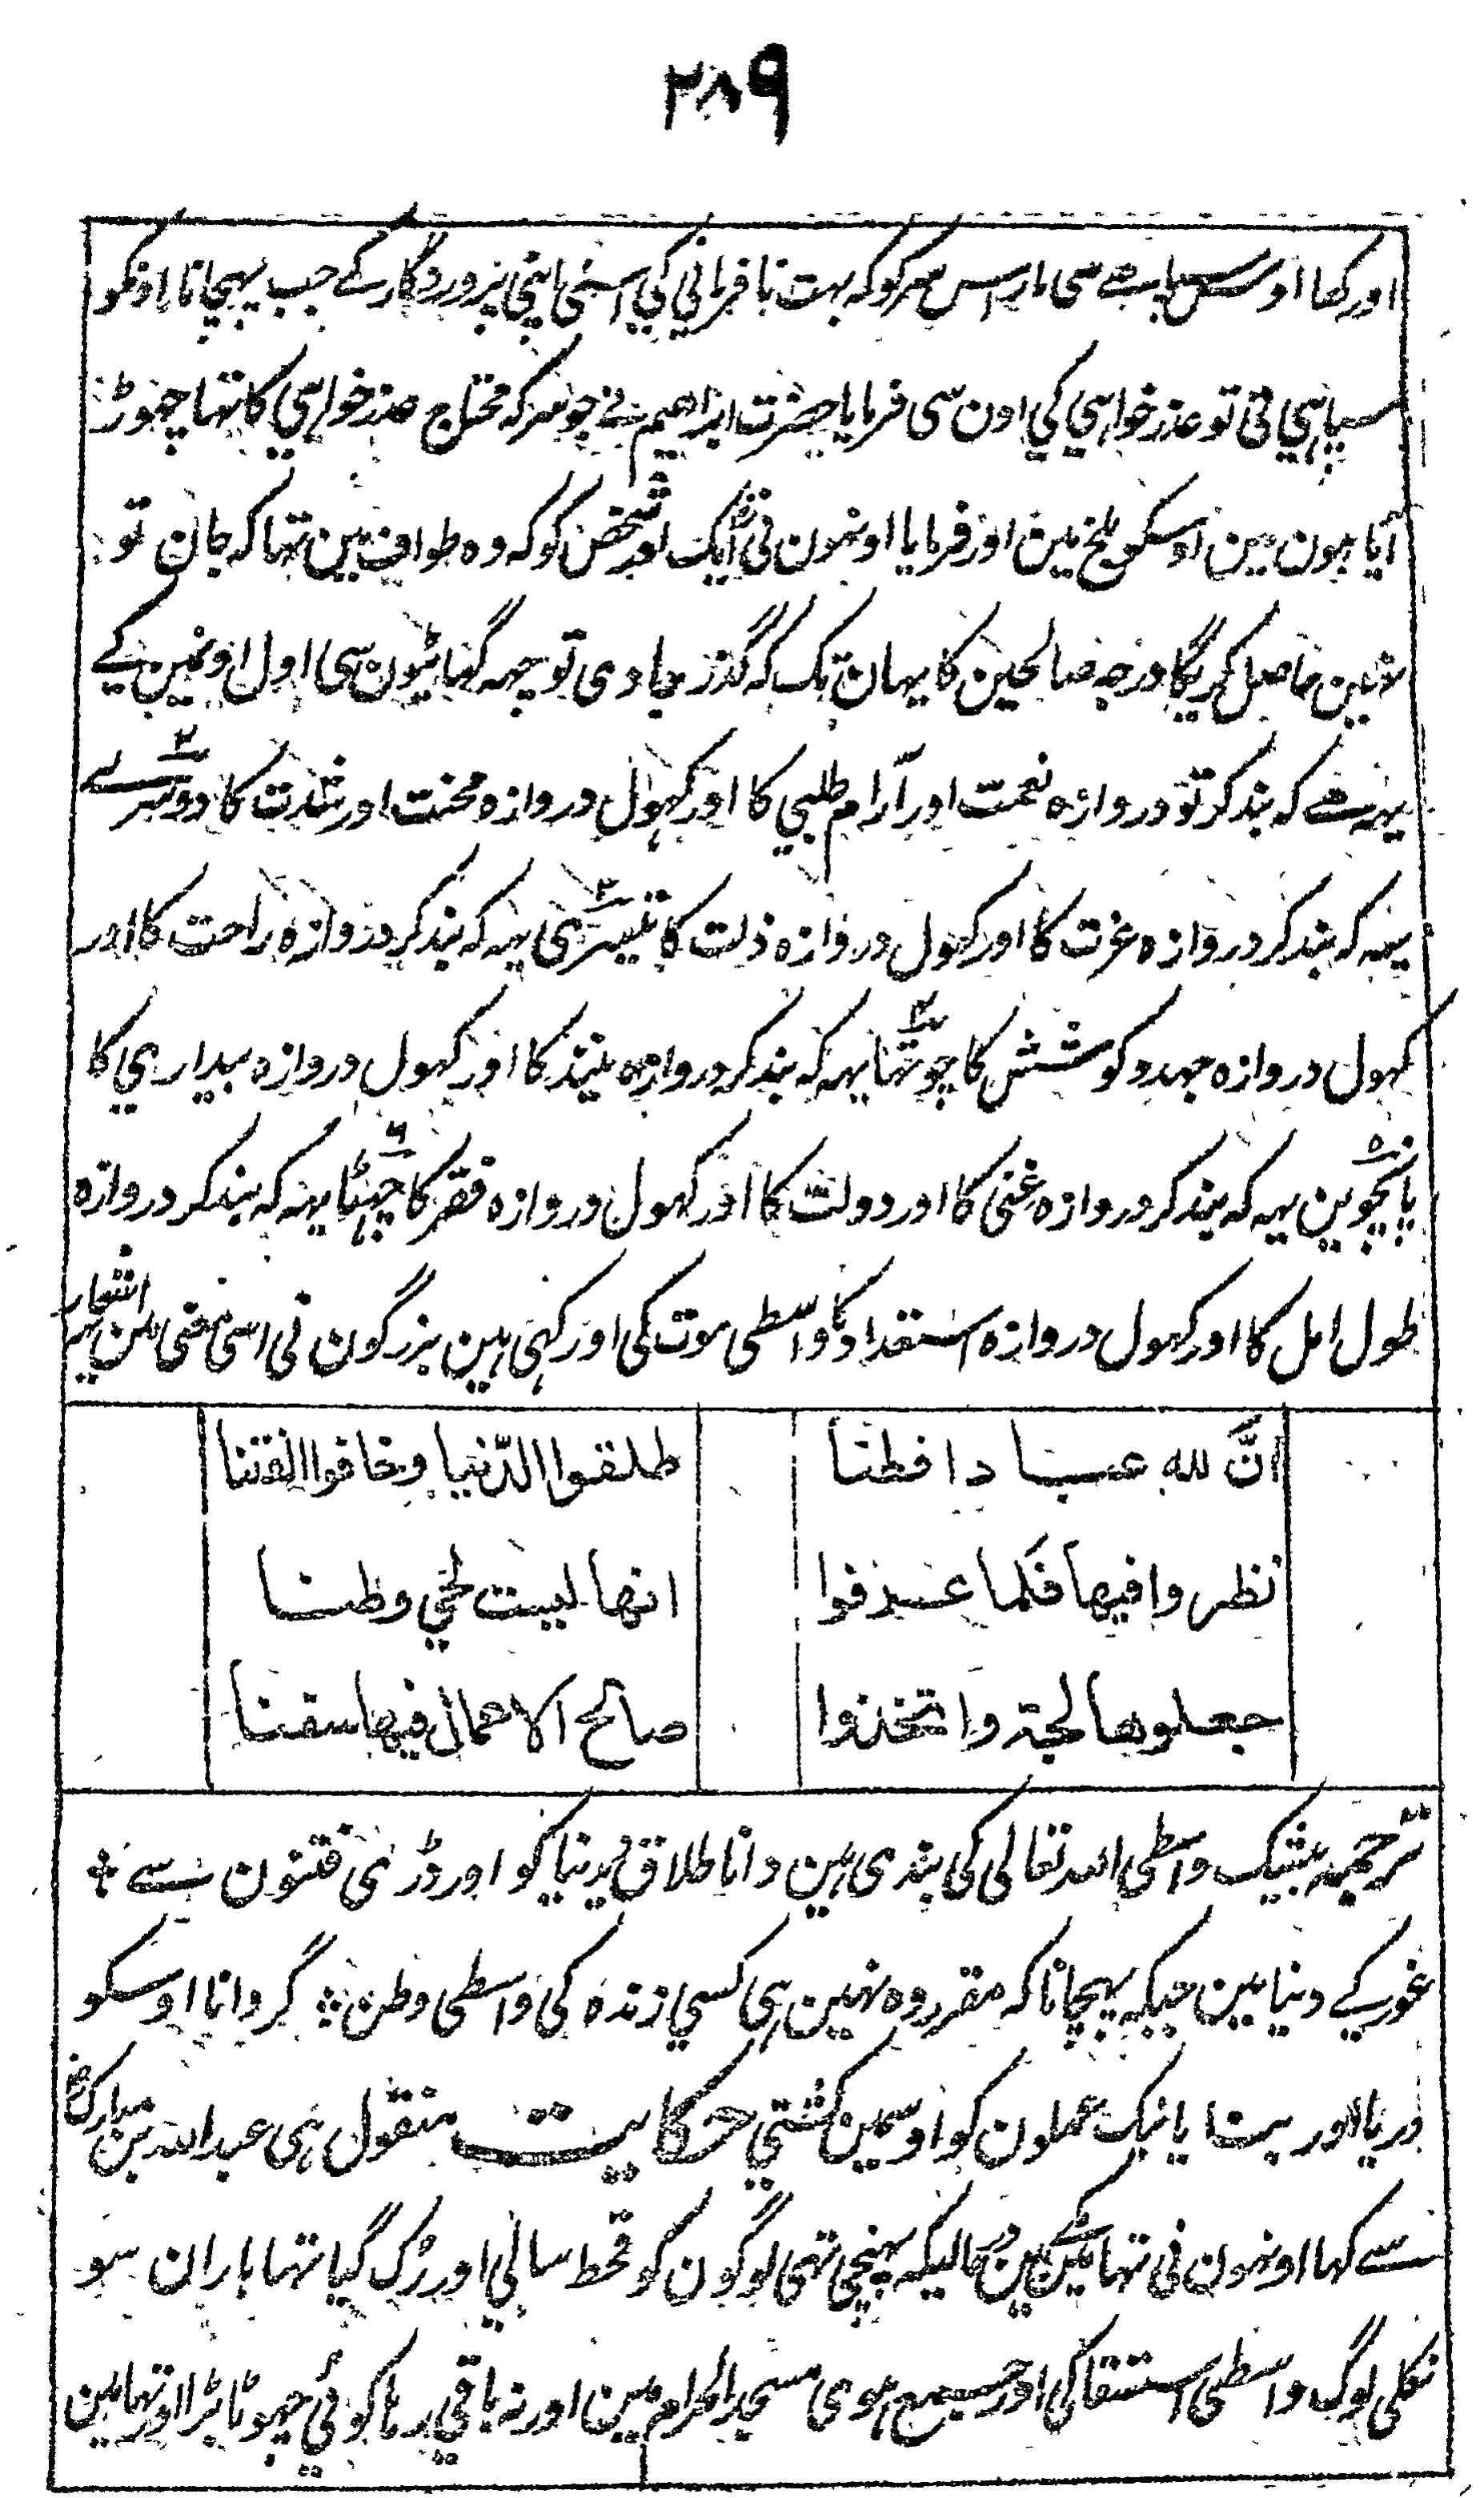 ۲۸۹
اور کہا اوس سپاہے سی مار اس سر کو کہ بہت نافرمانی کی اسنی اپنی پروردگار کے جب پہچانا اونکو
سپاہی نی تو عذر خواہی کی اون سی فرمایا حضرت ابراھیم نے جو سر کہ محتاج عذر خواہی کا تہا چھوڑ
آیا ہون مین اوسکو بلخ مین اور فرمایا اونہون نی ایک اور شخص کو کہ وہ طواف مین تہا کہ جان تو
نہین حاصل کریگا درجہ صالحین کا یہان تک کہ گذر جاوی تو چہہ گہاٹیون سی اول اونمین کے
یہہ ہے کہ بند کر تو دروازہ نعمت اور آرام طلبی کا اور کہول دروازہ محنت اور شدت کا دوسرے
یہہ کہ بند کر دروازہ عزت کا اور کہول دروازہ ذلت کا تیسری یہہ کہ بند کر دروازہ راحت کا اور
کہول دروازہ جہد و کوشش کا چوتہا یہہ کہ بند کر دروازہ نیند کا اور کہول دروازہ بیداری کا
پانچوین یہہ کہ بند کر دروازہ غنی کا اور دولت کا اور کہول دروازہ فقر کا چہٹا یہہ کہ بند کر دروازہ
طول امل کا اور کہول دروازہ استعداد کا واسطی موت کی اور کہی ہین بزرگون نی اسی معنی مین یہہ اشعار
انَّ للہ عبادا فطنا طلقوا الدّنیا وخافوا الفتنا
نظروا فیھا فلما عرفوا انھا لیست لحی وطنا
جعلوھا لجۃ واتخذوا صالح الاعمال فیھا سفنا
ترجمہ بیشک واسطی اللہ تعالی کی بندی ہین دانا طلاق دی دنیا کو اور ڈری فتنون سے ÷
غور کے دنیا مین جبکہ پہچانا کہ مقرر وہ نہین ہی کسی زندہ کی واسطی وطن ÷ گردانا اوسکو
دریا اور بنایا نیک عملون کو اوسمین کشتی حکایت منقول ہی عبد اللہ بن مبارک رض
سے کہا اونہون نی تہا مکے مین درحالیکہ پہنچی تہی لوگون کو قحط سالی اور رک گیا تہا باران سو
نکلی لوگ واسطی استسقا کی اور جمع ہوی مسجد الحرام مین اور نہ باقی رہا کوئی چہوٹا بڑا اور تہا مین